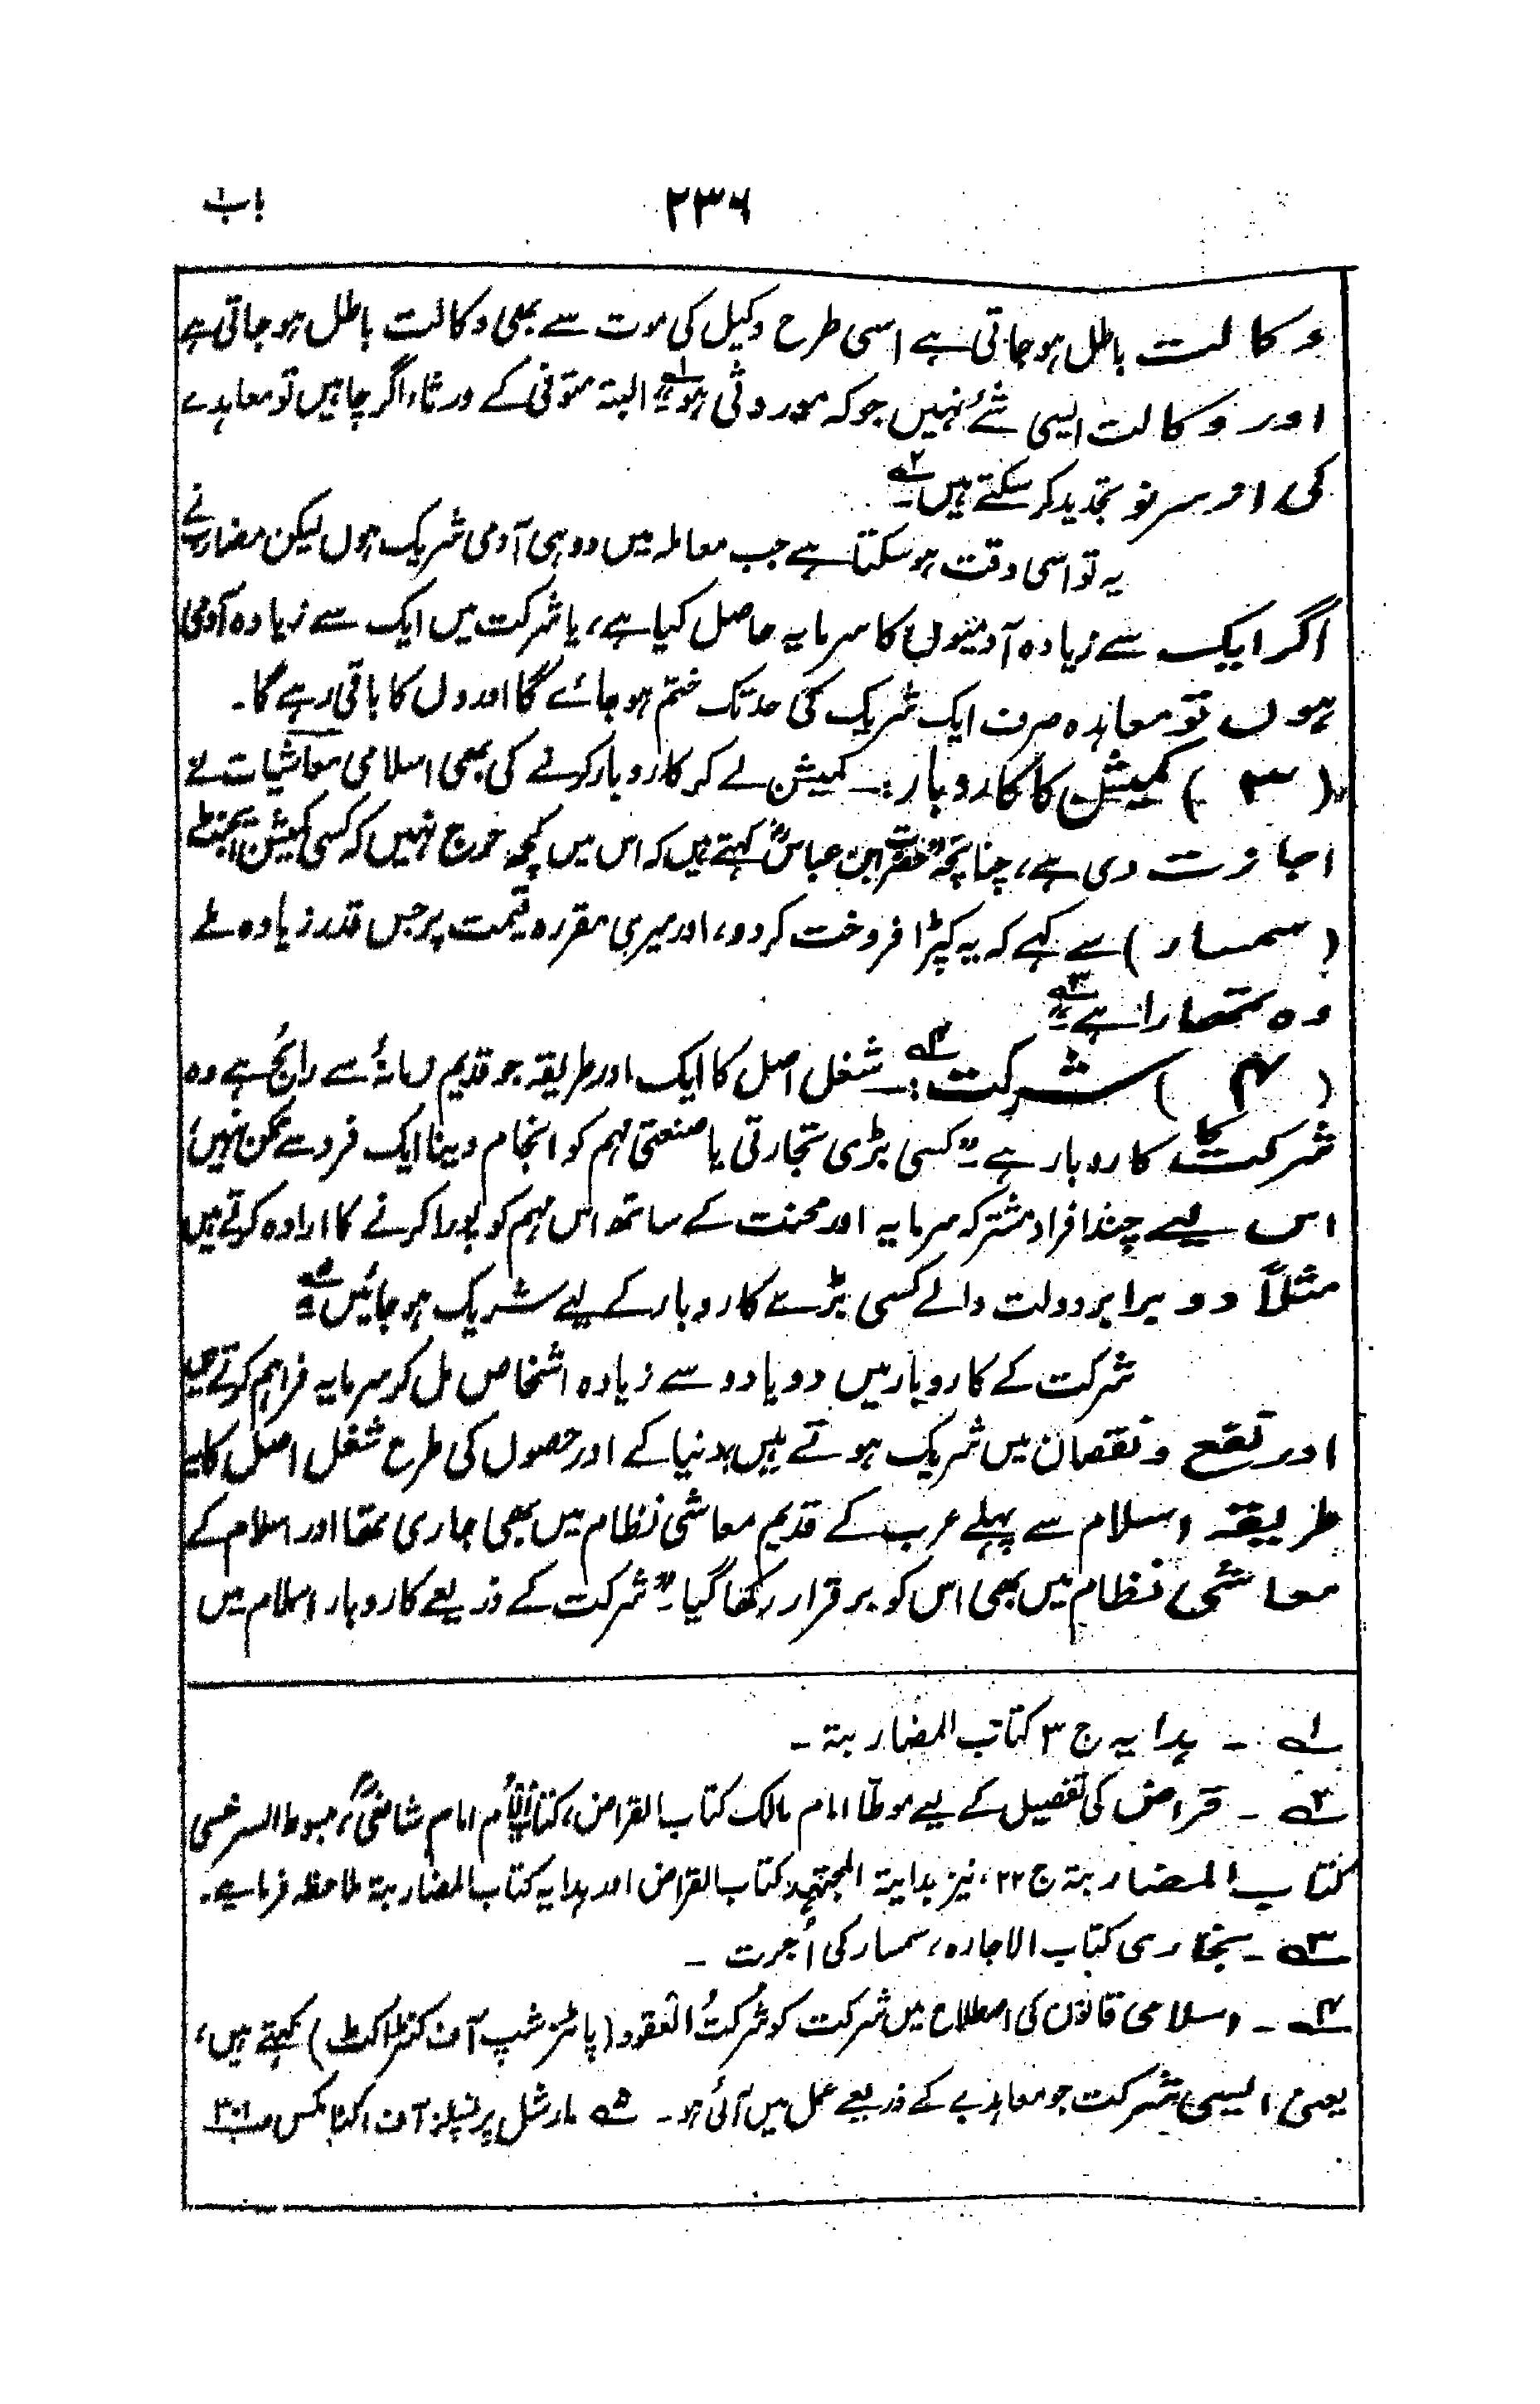 باب
۲۳۶
وکالت باطل ہوجاتی ہے اسی طرح وکیل کی موت سے بھی وکالت باطل ہوجاتی ہے
اور وکالت ایسی شئے نہیں جو کہ موروثی ہو"۱؎ البتہ متوفی کے ورثاء اگر چاہیں تو معاہدے
کی از سر نو تجدید کر سکتے ہیں۲؎۔
یہ تو اسی وقت ہوسکتا ہے جب معاملہ میں دو ہی آدمی شریک ہوں لیکن مضارب نے
اگر ایک سے زیادہ آدمیوں کا سرمایہ حاصل کیا ہے، یا شرکت میں ایک سے زیادہ آدمی
ہوں تو معاہدہ صرف ایک شریک کی حد تک ختم ہوجائے گا اوروں کا باقی رہے گا۔
(۳) کمیشن کا کاروبار:۔ کمیشن لے کر کاروبار کرنے کی بھی اسلامی معاشیات نے
اجازت دی ہے، چنانچہ "حضرت ابن عباسؓ کہتے ہیں کہ اس میں کچھ حرج نہیں کہ کسی کمیشن ایجنٹ
(سمسار) سے کہے کہ یہ کپڑا فروخت کردو، اور میری مقررہ قیمت پر جس قدر زیادہ ملے
وہ تمھارا ہے"۳؎
(۴) شرکت۴؎:۔ شغل اصل کا ایک اور طریقہ جو قدیم زمانۂ سے رائج ہے وہ
شرکت کا کاروبار ہے۔ "کسی بڑی تجارتی یا صنعتی مہم کو انجام دینا ایک فرد سے ممکن نہیں،
اس لیے چند افراد مشترکہ سرمایہ اور محنت کے ساتھ اس مہم کو پورا کرنے کا ارادہ کرتے ہیں
مثلاً دو برابر دولت والے کسی بڑے کاروبار کے لیے شریک ہوجائیں"۵؎
شرکت کے کاروبار میں دو یا دو سے زیادہ اشخاص مل کر سرمایہ فراہم کرتے ہیں
اور نفع و نقصان میں شریک ہوتے ہیں، دنیا کے اور حصوں کی طرح شغل اصل کا یہ
طریقہ اسلام سے پہلے عرب کے قدیم معاشی نظام میں بھی جاری تھا اور اسلام کے
معاشی نظام میں بھی اس کو برقرار رکھا گیا۔ "شرکت کے ذریعے کاروبار اسلام میں
۱؎ ۔ ہدایہ ج ۳ کتاب المضاربۃ ۔
۲؎ ۔ قراض کی تفصیل کے لیے موطّا امام مالک کتاب القراض، کتاب الاُم امام شافعیؒ، مبسوط السرخسی
کتاب المضاربۃ ج ۲۲، نیز بدایۃ المجتہد کتاب القراض اور ہدایہ کتاب المضاربۃ ملاحظہ فرمائیے۔
۳؎ ۔ بخاری کتاب الاجارہ، سمسار کی اُجرت ۔
۴؎ ۔ اسلامی قانون کی اصطلاح میں شرکت کو شرکتُ العقود (پارٹنر شپ آف کنٹراکٹ) کہتے ہیں،
یعنی ایسی شرکت جو معاہدے کے ذریعے عمل میں آئی ہو۔ ۵؎ مارشل پرنسپلز آف اکنامکس ص ۳۰۱